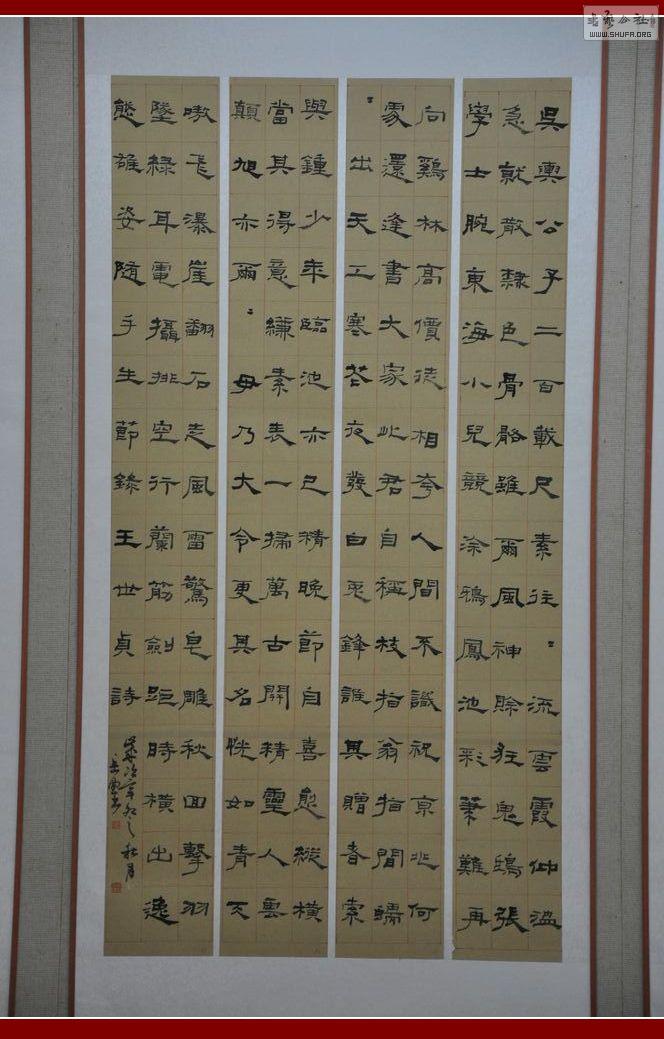 吳興公子二百載尺素往々流雲霞仲溫
急就散隸色骨骼雖爾風神賒狂鬼鴟張
學士腕東海小兒競涂鴉鳳池彩筆難再
向鷄林高價徒相夸人間不識祝京兆何
處還逢書大家此君自稱枝指翁指間蠕
々出天工寒芒夜發白兔鋒誰其贈者索
與鍾少年臨池亦已精晚節自喜愈縱橫
當其得意縑素表一掃萬古開精靈人雲
顛旭亦爾々毋乃大令更其名恍如青天
嗷飛瀑崖翻石走風雷驚皂雕秋回擊羽
墜綠耳電攝排空行蘭筋劍距時橫出逸
態雄姿隨手生節錄王世貞詩
歲次辛卯之秋月
WWW.SHUFA.ORG